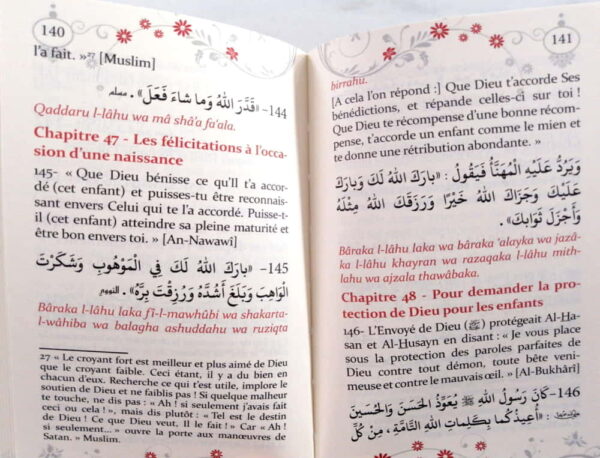 140
l'a fait. »²⁷ [Muslim]
144- «قَدَّرَ اللهُ وَمَا شَاءَ فَعَلَ» . مسلم
Qaddaru l-lâhu wa mâ shâ'a fa'ala.
Chapitre 47 - Les félicitations à l'occa-
sion d'une naissance
145- « Que Dieu bénisse ce qu'Il t'a accor-
dé (cet enfant) et puisses-tu être reconnais-
sant envers Celui qui te l'a accordé. Puisse-t-
il (cet enfant) atteindre sa pleine maturité et
être bon envers toi. » [An-Nawawî]
145- «بَارَكَ اللهُ لَكَ فِي الْمَوْهُوبِ وَشَكَرْتَ
الْوَاهِبَ وَبَلَغَ أَشُدَّهُ وَرُزِقْتَ بِرَّهُ» . النووي
Bâraka l-lâhu laka fî-l-mawhûbi wa shakarta-
l-wâhiba wa balagha ashuddahu wa ruziqta
27 « Le croyant fort est meilleur et plus aimé de Dieu
que le croyant faible. Ceci étant, il y a du bien en
chacun d'eux. Recherche ce qui t'est utile, implore le
soutien de Dieu et ne faiblis pas ! Si quelque malheur
te touche, ne dis pas : « Ah ! si seulement j'avais fait
ceci ou cela ! », mais dis plutôt : « Tel est le destin
de Dieu ! Ce que Dieu veut, Il le fait ! » Car « Ah !
si seulement... » ouvre la porte aux manœuvres de
Satan. » Muslim.
141
birrahu.
[A cela l'on répond :] Que Dieu t'accorde Ses
bénédictions, et répande celles-ci sur toi !
Que Dieu te récompense d'une bonne récom-
pense, t'accorde un enfant comme le mien et
te donne une rétribution abondante. »
وَيَرُدُّ عَلَيْهِ الْمُهَنَّأُ فَيَقُولُ : «بَارَكَ اللهُ لَكَ وَبَارَكَ
عَلَيْكَ وَجَزَاكَ اللهُ خَيْرًا وَرَزَقَكَ اللهُ مِثْلَهُ
وَأَجْزَلَ ثَوَابَكَ» .
Bâraka l-lâhu laka wa bâraka 'alayka wa jazâ-
ka l-lâhu khayran wa razaqaka l-lâhu mith-
lahu wa ajzala thawâbaka.
Chapitre 48 - Pour demander la pro-
tection de Dieu pour les enfants
146- L'Envoyé de Dieu (ﷺ) protégeait Al-Ha-
san et Al-Husayn en disant : « Je vous place
sous la protection des paroles parfaites de
Dieu contre tout démon, toute bête veni-
meuse et contre le mauvais œil. » [Al-Bukhârî]
146- كَانَ رَسُولُ اللهِ ﷺ يُعَوِّذُ الْحَسَنَ وَالْحُسَيْنَ
«أُعِيذُكُمَا بِكَلِمَاتِ اللهِ التَّامَّةِ، مِنْ كُلِّ